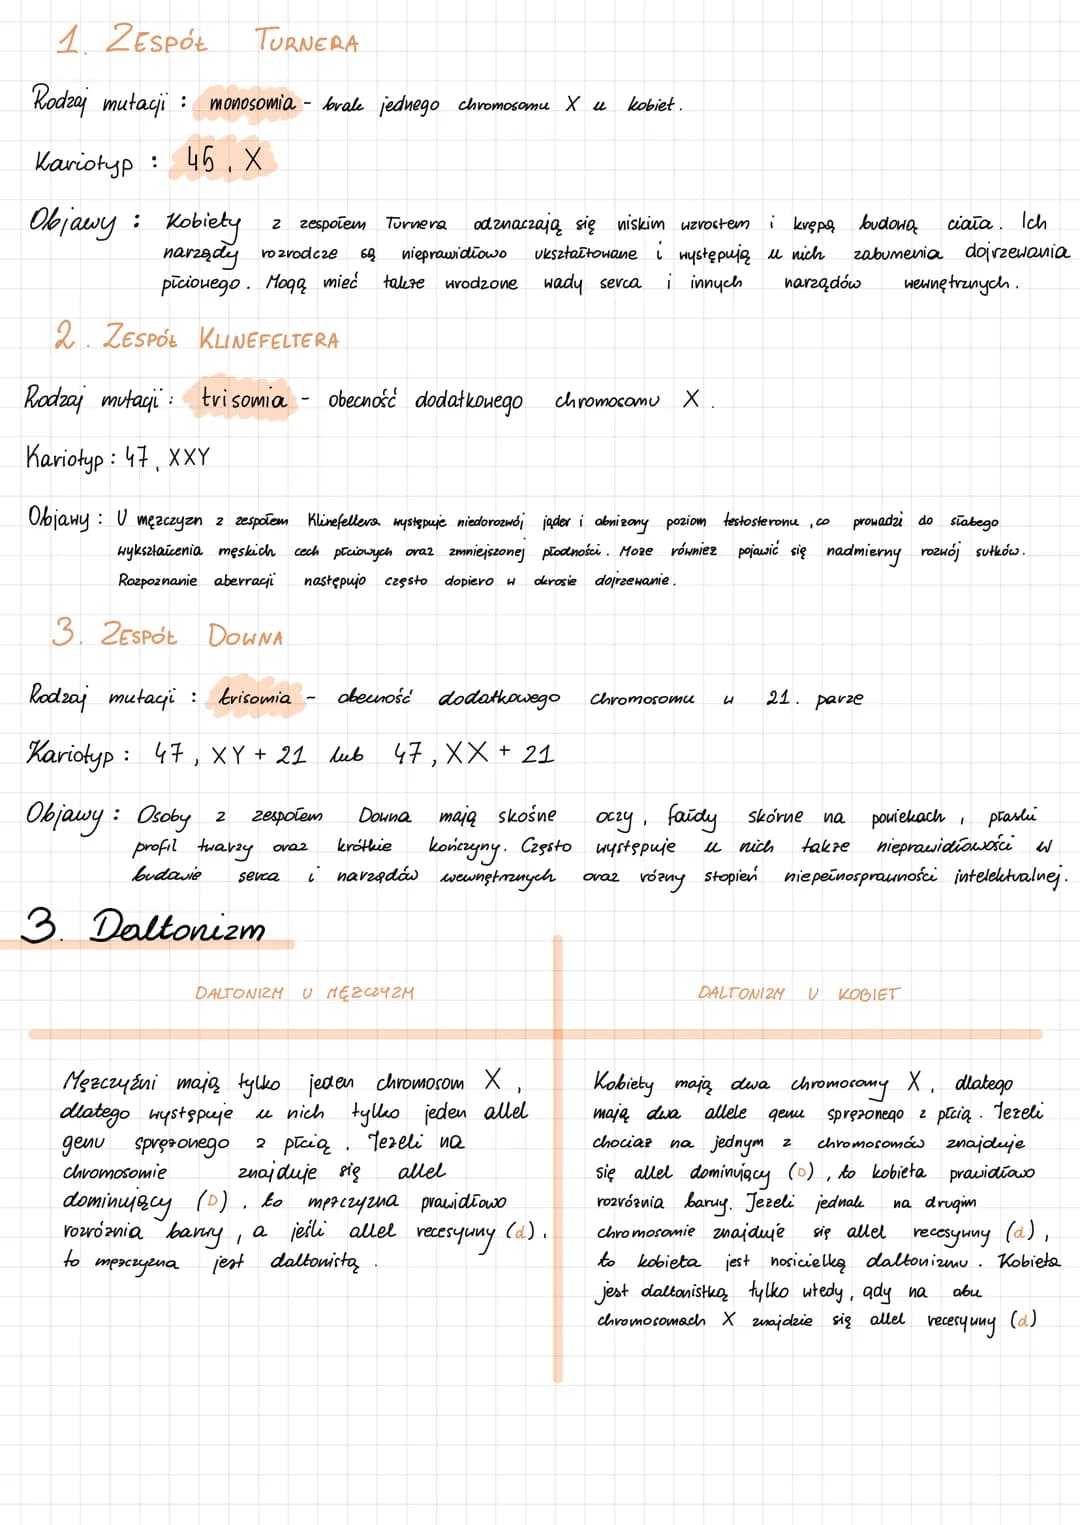 1. ZESPÓŁ TURNERA
Rodzaj mutacji : monosomia - brak jednego chromosomu X u kobiet.
Kariotyp : 45, X
Objawy : Kobiety z zespołem Turnera odznaczają się niskim wzrostem i krępą budową ciała. Ich
narządy rozrodcze są nieprawidłowo ukształtowane i występują u nich zaburzenia dojrzewania
płciowego. Mogą mieć także wrodzone wady serca i innych narządów wewnętrznych.
2. ZESPÓŁ KLINEFELTERA
Rodzaj mutacji : trisomia - obecność dodatkowego chromosomu X.
Kariotyp : 47, XXY
Objawy : U mężczyzn z zespołem Klinefeltera występuje niedorozwój jąder i obniżony poziom testosteronu, co prowadzi do słabego
wykształcenia męskich cech płciowych oraz zmniejszonej płodności. Może również pojawić się nadmierny rozwój sutków.
Rozpoznanie aberracji następujo często dopiero w okrosie dojrzewanie.
3. ZESPÓŁ DOWNA
Rodzaj mutacji : trisomia - obecność dodatkowego chromosomu w 21. parze
Kariotyp : 47, XY + 21 lub 47, XX + 21
Objawy : Osoby z zespołem Downa mają skośne oczy, fałdy skórne na powiekach, płaski
profil twarzy oraz krótkie kończyny. Często występuje u nich także nieprawidłowości w
budowie serca i narządów wewnętrznych oraz różny stopień niepełnosprawności intelektualnej.
3. Daltonizm
DALTONIZM U MĘŻCZYZM
Mężczyźni mają tylko jeden chromosom X,
dlatego występuje u nich tylko jeden allel
genu sprężonego z płcią. Jeżeli na
chromosomie znajduje się allel
dominujący (D), to mężczyzna prawidłowo
rozróżnia barwy, a jeśli allel recesywny (d),
to mężczyzna jest daltonistą.
DALTONIZM U KOBIET
Kobiety mają dwa chromosomy X, dlatego
mają dwa allele genu sprężonego z płcią. Jeżeli
chociaż na jednym z chromosomów znajduje
się allel dominujący (D), to kobieta prawidłowo
rozróżnia barwy. Jeżeli jednak na drugim
chromosomie znajduje się allel recesywny (d),
to kobieta jest nosicielką daltonizmu. Kobieta
jest daltonistką tylko wtedy, gdy na obu
chromosomach X znajdzie się allel recesywny (d)